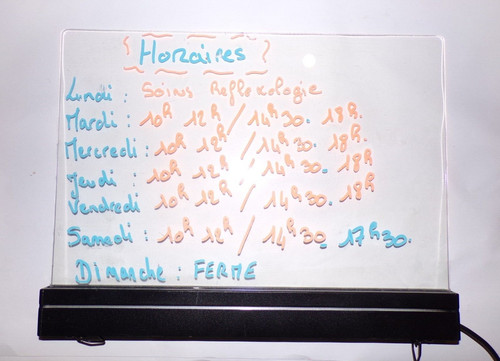 Horaires
Lundi : Soins Reflexologie
Mardi : 10h 12h / 14h30. 18h.
Mercredi : 10h 12h / 14h30. 18h.
Jeudi : 10h 12h / 14h30. 18h
Vendredi 10h 12h / 14h30. 18h
Samedi : 10h 12h / 14h30_ 17h30.
Dimanche : FERME